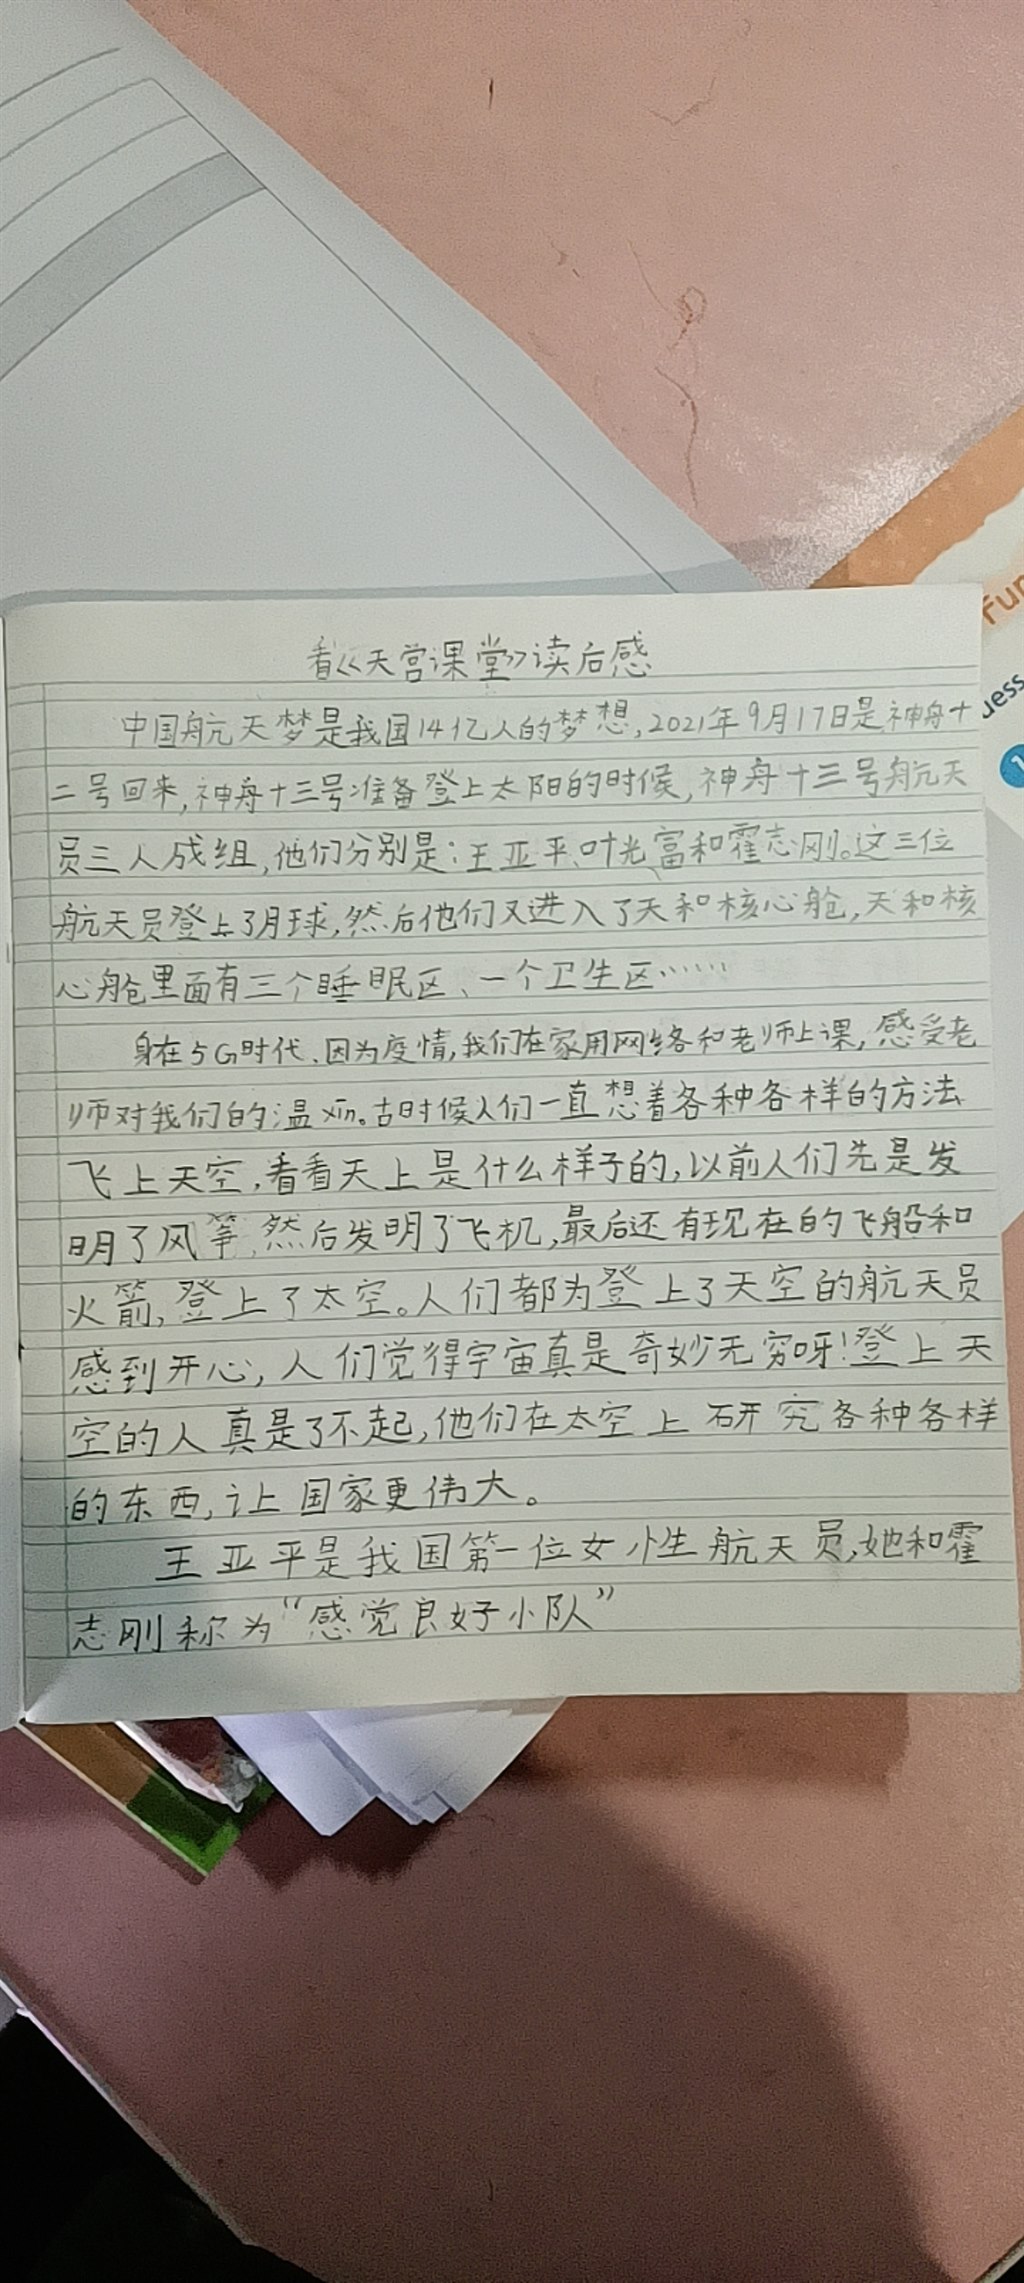 看《天宫课堂》读后感
中国航天梦是我国14亿人的梦想,2021年9月17日是神舟十
二号回来,神舟十三号准备登上太阳的时候,神舟十三号航天
员三人成组,他们分别是:王亚平、叶光富和霍志刚。这三位
航天员登上了月球,然后他们又进入了天和核心舱,天和核
心舱里面有三个睡眠区、一个卫生区……
身在5G时代,因为疫情,我们在家用网络和老师上课,感受老
师对我们的温xin。古时候人们一直想着各种各样的方法
飞上天空,看看天上是什么样子的,以前人们先是发
明了风筝,然后发明了飞机,最后还有现在的飞船和
火箭,登上了太空。人们都为登上了天空的航天员
感到开心,人们觉得宇宙真是奇妙无穷呀!登上天
空的人真是了不起,他们在太空上研究各种各样
的东西,让国家更伟大。
王亚平是我国第一位女性航天员,她和霍
志刚称为“感觉良好小队”
Fun
uess
1